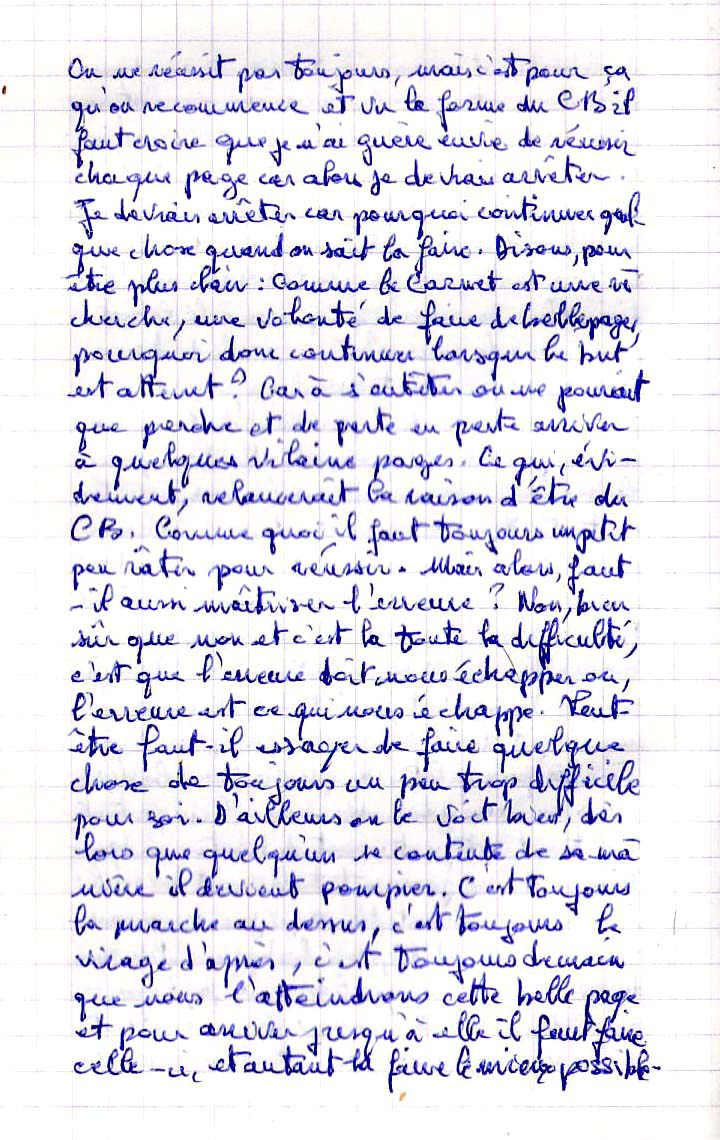 On ne réussit pas toujours, mais c'est pour ça
qu'on recommence et vu la forme du CB il
faut croire que je n'ai guère envie de réussir
chaque page car alors je devrais arrêter.
Je devrais arrêter car pourquoi continuer quel
que chose quand on sait la faire. Disons, pour
être plus clair : Comme le Carnet est une re
cherche, une volonté de faire de belles pages,
pourquoi donc continuer lorsque le but
est atteint ? Car à s'entêter on ne pourrait
que perdre et de perte en perte arriver
à quelques vilaine pages. Ce qui, évi-
dement, relancerait la raison d'être du
CB. Comme quoi il faut toujours un petit
peu râter pour réussir. Mais alors, faut
-il aussi maîtriser l'erreure ? Non, bien
sûr que non et c'est la toute la difficulté,
c'est que l'erreure doit nous échapper ou,
l'erreure est ce qui nous échappe. Peut-
être faut-il essayer de faire quelque
chose de toujours un peu trop difficile
pour soi. D'ailleurs on le voit bien, dès
lors que quelqu'un se contente de sa ma
nière il devient pompier. C'est toujours
la marche au dessus, c'est toujours le
virage d'après, c'est toujours demain
que nous l'atteindrons cette belle page
et pour arriver jusqu'à elle il faut faire
celle-ci, et autant la faire le mieux possible.